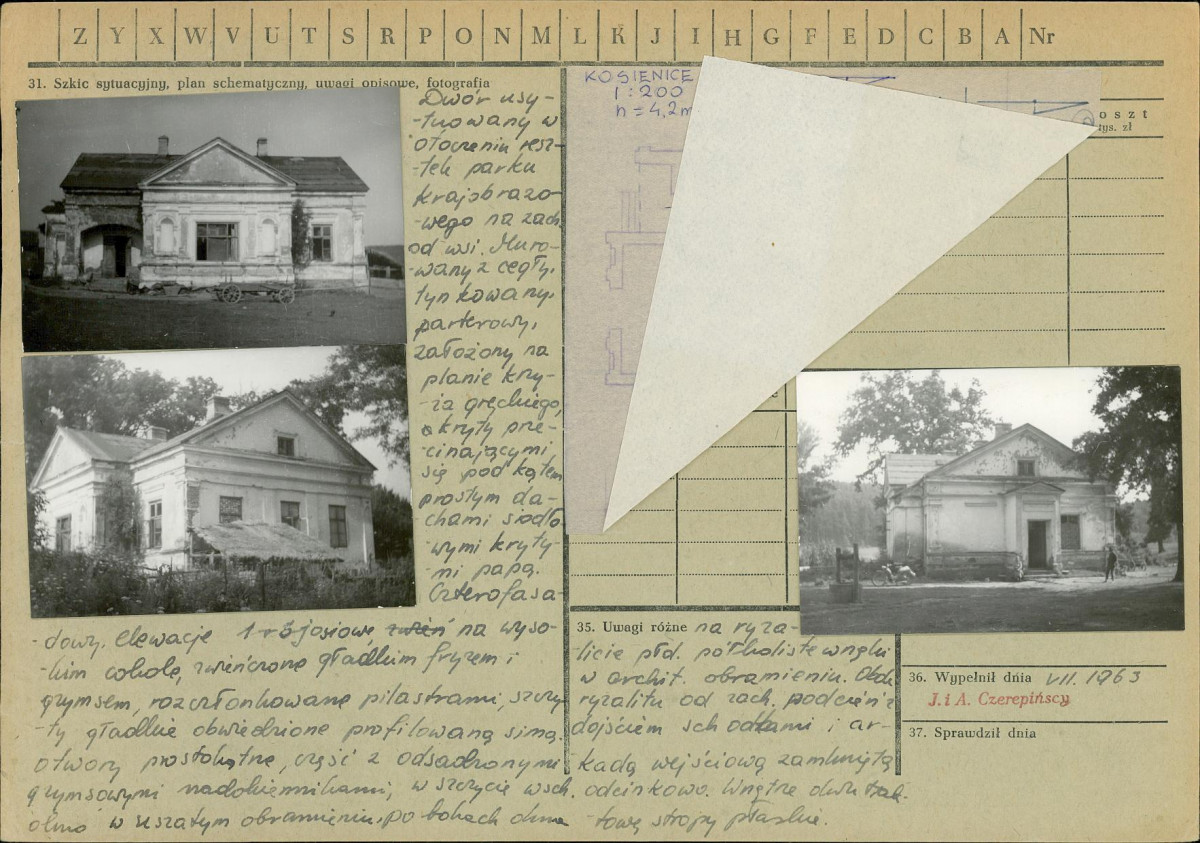 Z Y X W V U T S R P O N M L K J I H G F E D C B A Nr
31. Szkic sytuacyjny, plan schematyczny, uwagi opisowe, fotografia
Dwór usy-
-tuowany w
otoczeniu resz-
-tek parku
krajobrazo-
-wego na zach.
od wsi. Muro-
-wany z cegły,
tynkowany,
parterowy,
założony na
planie krzy-
-ża greckiego,
okryty prze-
-cinającymi
się pod kątem
prostym da-
-chami siodło
-wymi kryty-
-mi papą.
Czterofasa-
-dowy. elewacje 1 trójosiowe na wyso-
-kim cokole, zwieńczone gładkim fryzem i
gzymsem, rozczłonkowane pilastrami, szczy-
-ty gładkie obwiedzione profilowaną simą.
otwory prostokątne, część z odsadzonymi
gzymsowymi nadokiennikami, w szczycie wsch.
okno w uszatym obramieniu, po bokach okna
KOSIENICE
1:200
h = 4,2m
oszt
tys. zł
35. Uwagi różne na ryza-
-licie płd. półkoliste wnęki
w archit. obramieniu. Obok
ryzalitu od zach. podcień z
dojściem schodkami i ar-
kadą wejściową zamkniętą
odcinkowo. Wnętrze dwutrak-
-towe stropy płaskie.
36. Wypełnił dnia VII. 1963
J. i A. Czerepińscy
37. Sprawdził dnia